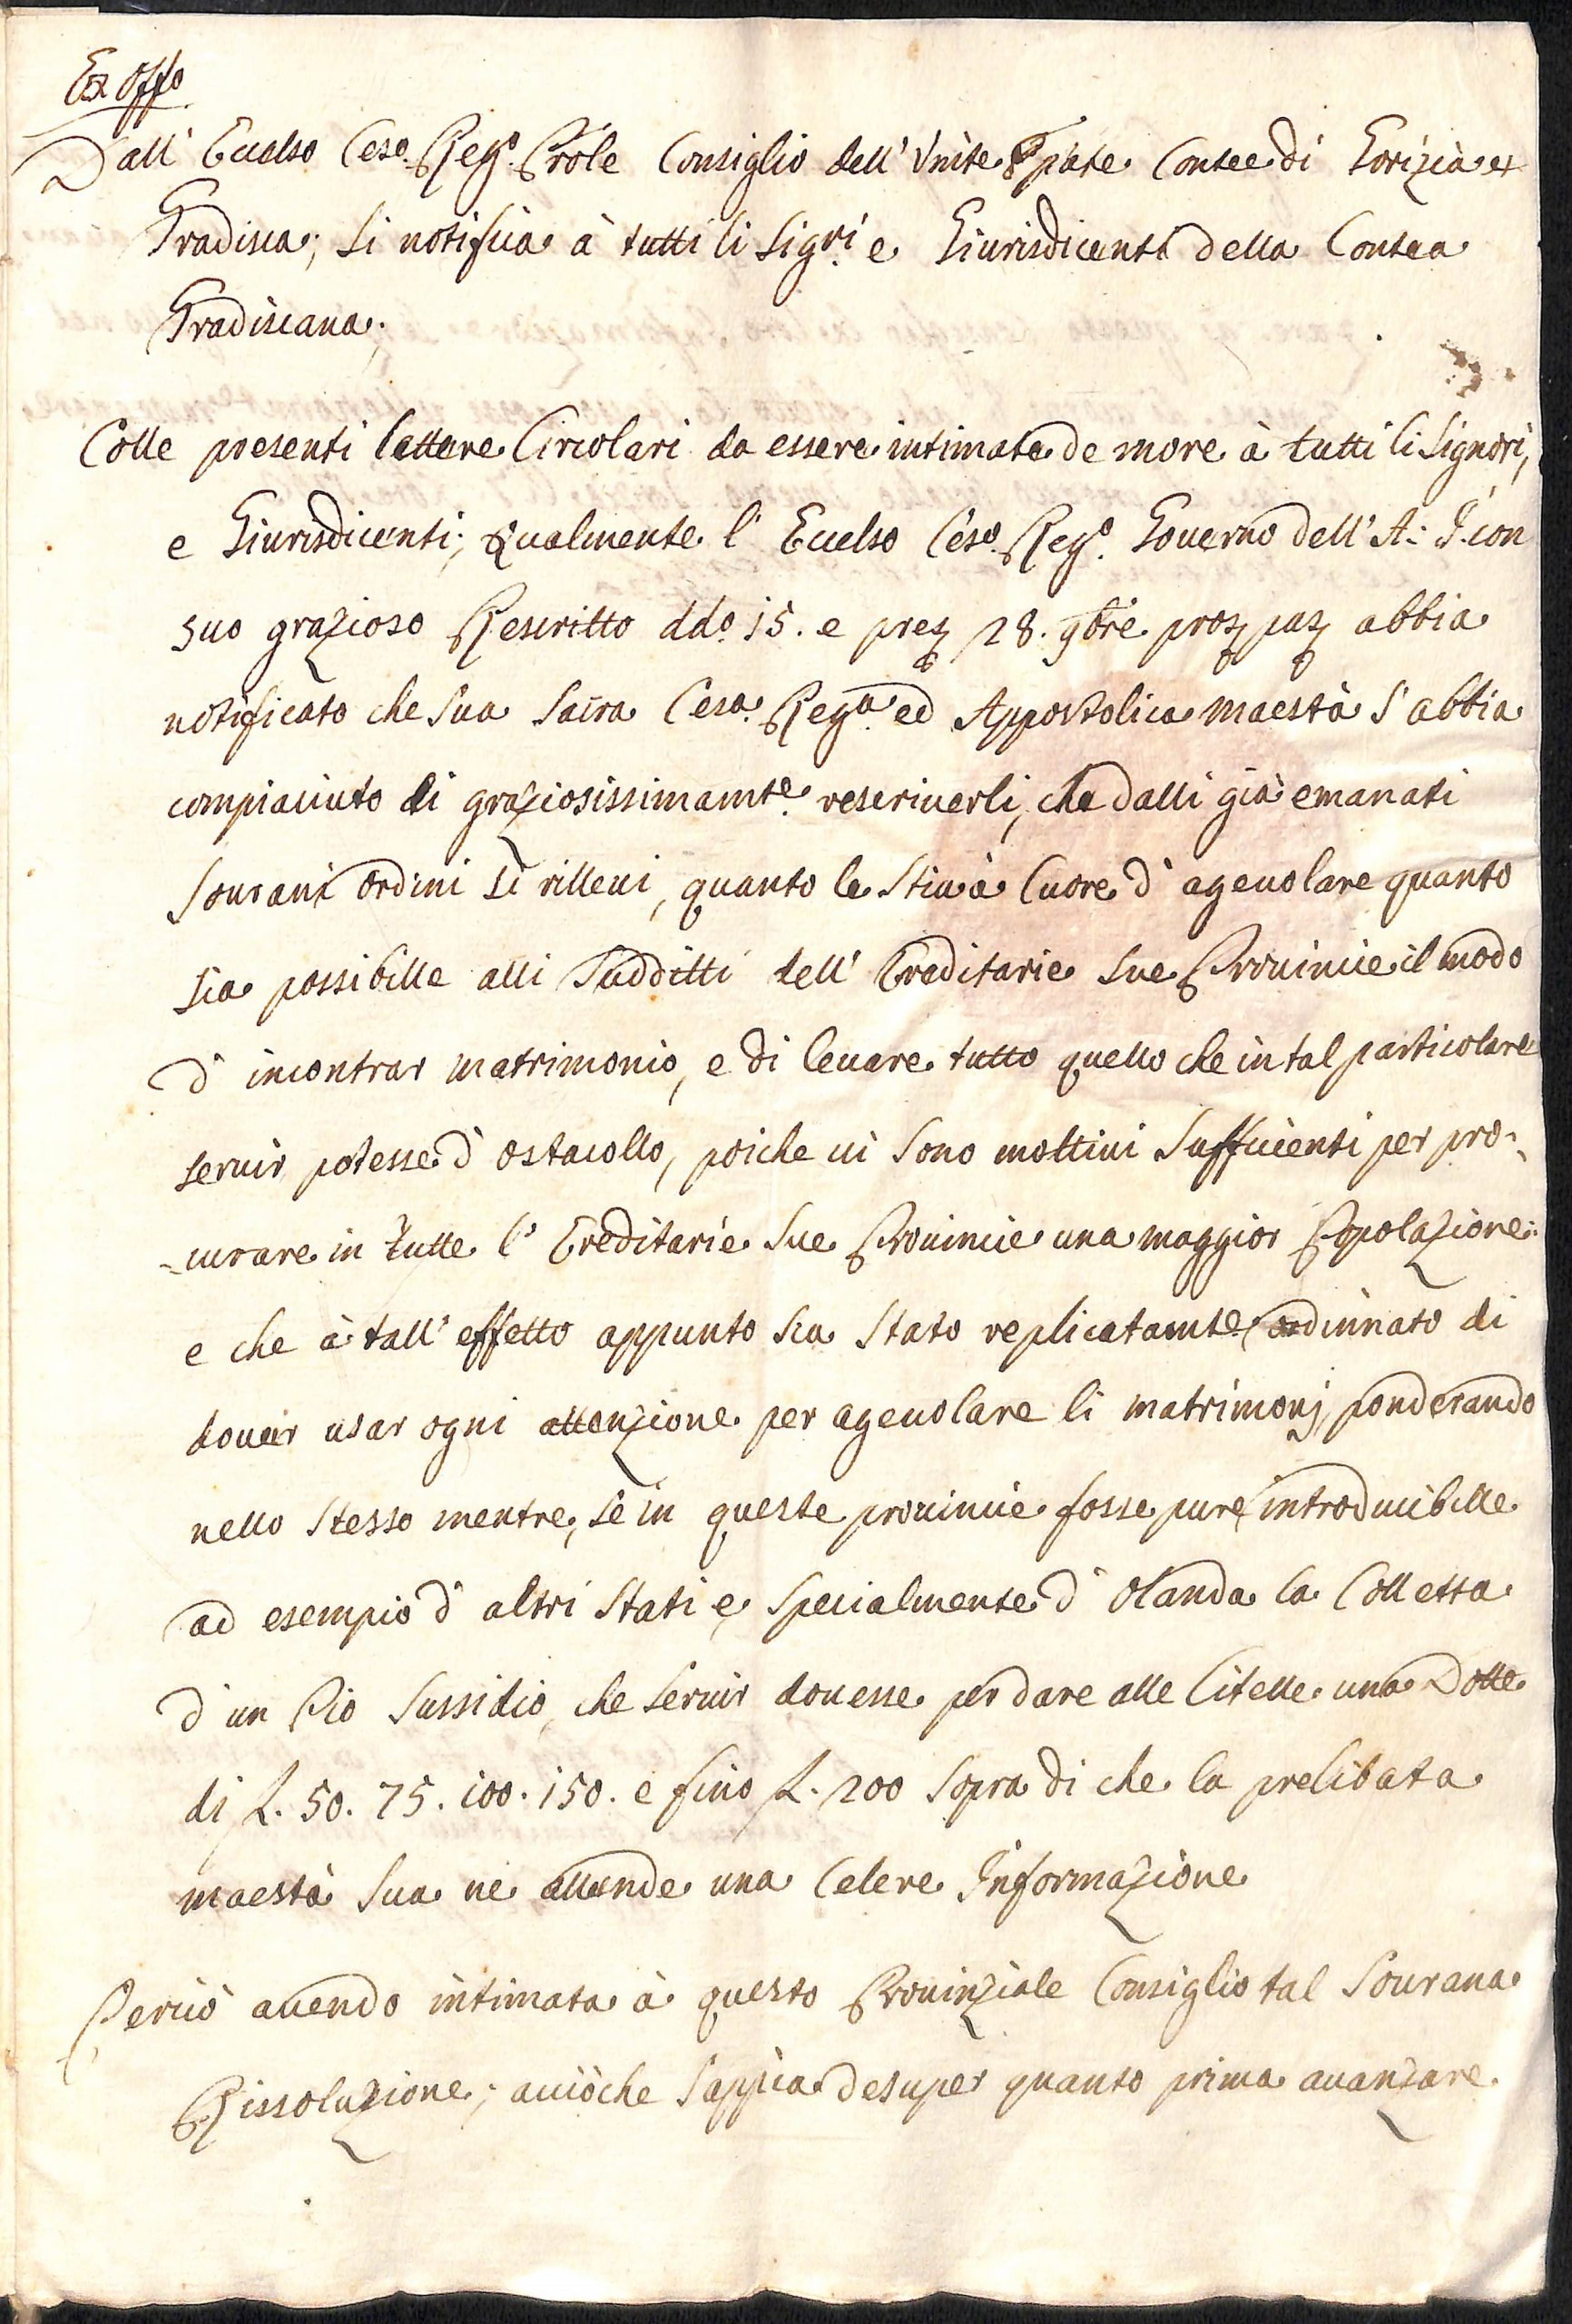 Ex Offo
Dall' Eccelso Ceso. Rego. Prole Consiglio dell' Unite Ppate Contee di Gorizia et
Gradisca; Si notificia à tutti li Sigri. e Giurisdicenti della Contea
Gradiscana;
Colle presenti lettere Circolari da essere intimate de more à tutti li Signori,
e Giurisdicenti; Qualmente l' Eccelso Ceso. Rego. Governo dell' A: I. con
suo grazioso Rescritto ddo. 15. e prez 28. 9bre. proz paz abbia
notificato che Sua Sacra Cesa. Rega. ed Appostolica Maestà S' abbia
compiaciuto di graziosissimamte. rescriverli, che dalli già emanati
Sourani ordini si rilleui, quanto le Stia à Cuore d' ageuolare quanto
sia possibille alli Sudditti dell' Ereditarie Sue Prouincie il modo
d' incontrar matrimonio, e di leuare tutto quello che in tal particolare
seruir potesse d' ostacollo, poiche ui Sono mottiui Sufficienti per pro-
-curare in tutte l' Ereditarie Sue Prouincie una maggior Popolazione:
e che à tall' effetto appunto Sia Stato replicatamte. ordinnato di
douer usar ogni attenzione per ageuolare li matrimonj, ponderando
nello Stesso mentre, se in queste prouincie fosse pure introducibille
ad esempio d' altri Stati e, Specialmente d' Olanda la Colletta
d' un Pio Sussidio, che Seruir douesse per dare alle Citelle una Dotte
di f. 50. 75. 100. 150. e fino f. 200 Sopra di che la prelibata
maestà Sua ne attende una Celere Informazione
Perciò auendo intimata à questo Prouinziale Consiglio tal Sourana
Rissoluzione; acciòche Sappia desuper quanto prima auanzare